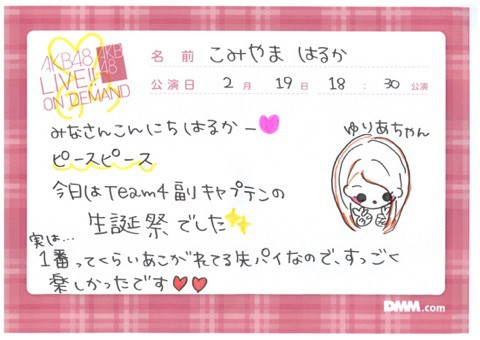 AKB48
LIVE!!
ON DEMAND
AKB
48
名前 こみやま はるか
公演日 2月 19日 18:30 公演
みなさんこんにちはるかー
ピースピース
ゆりあちゃん
今日はTeam4副キャプテンの
生誕祭でした
実は…
1番ってくらいあこがれてる先パイなので、すっごく
楽しかったです
DMM.com